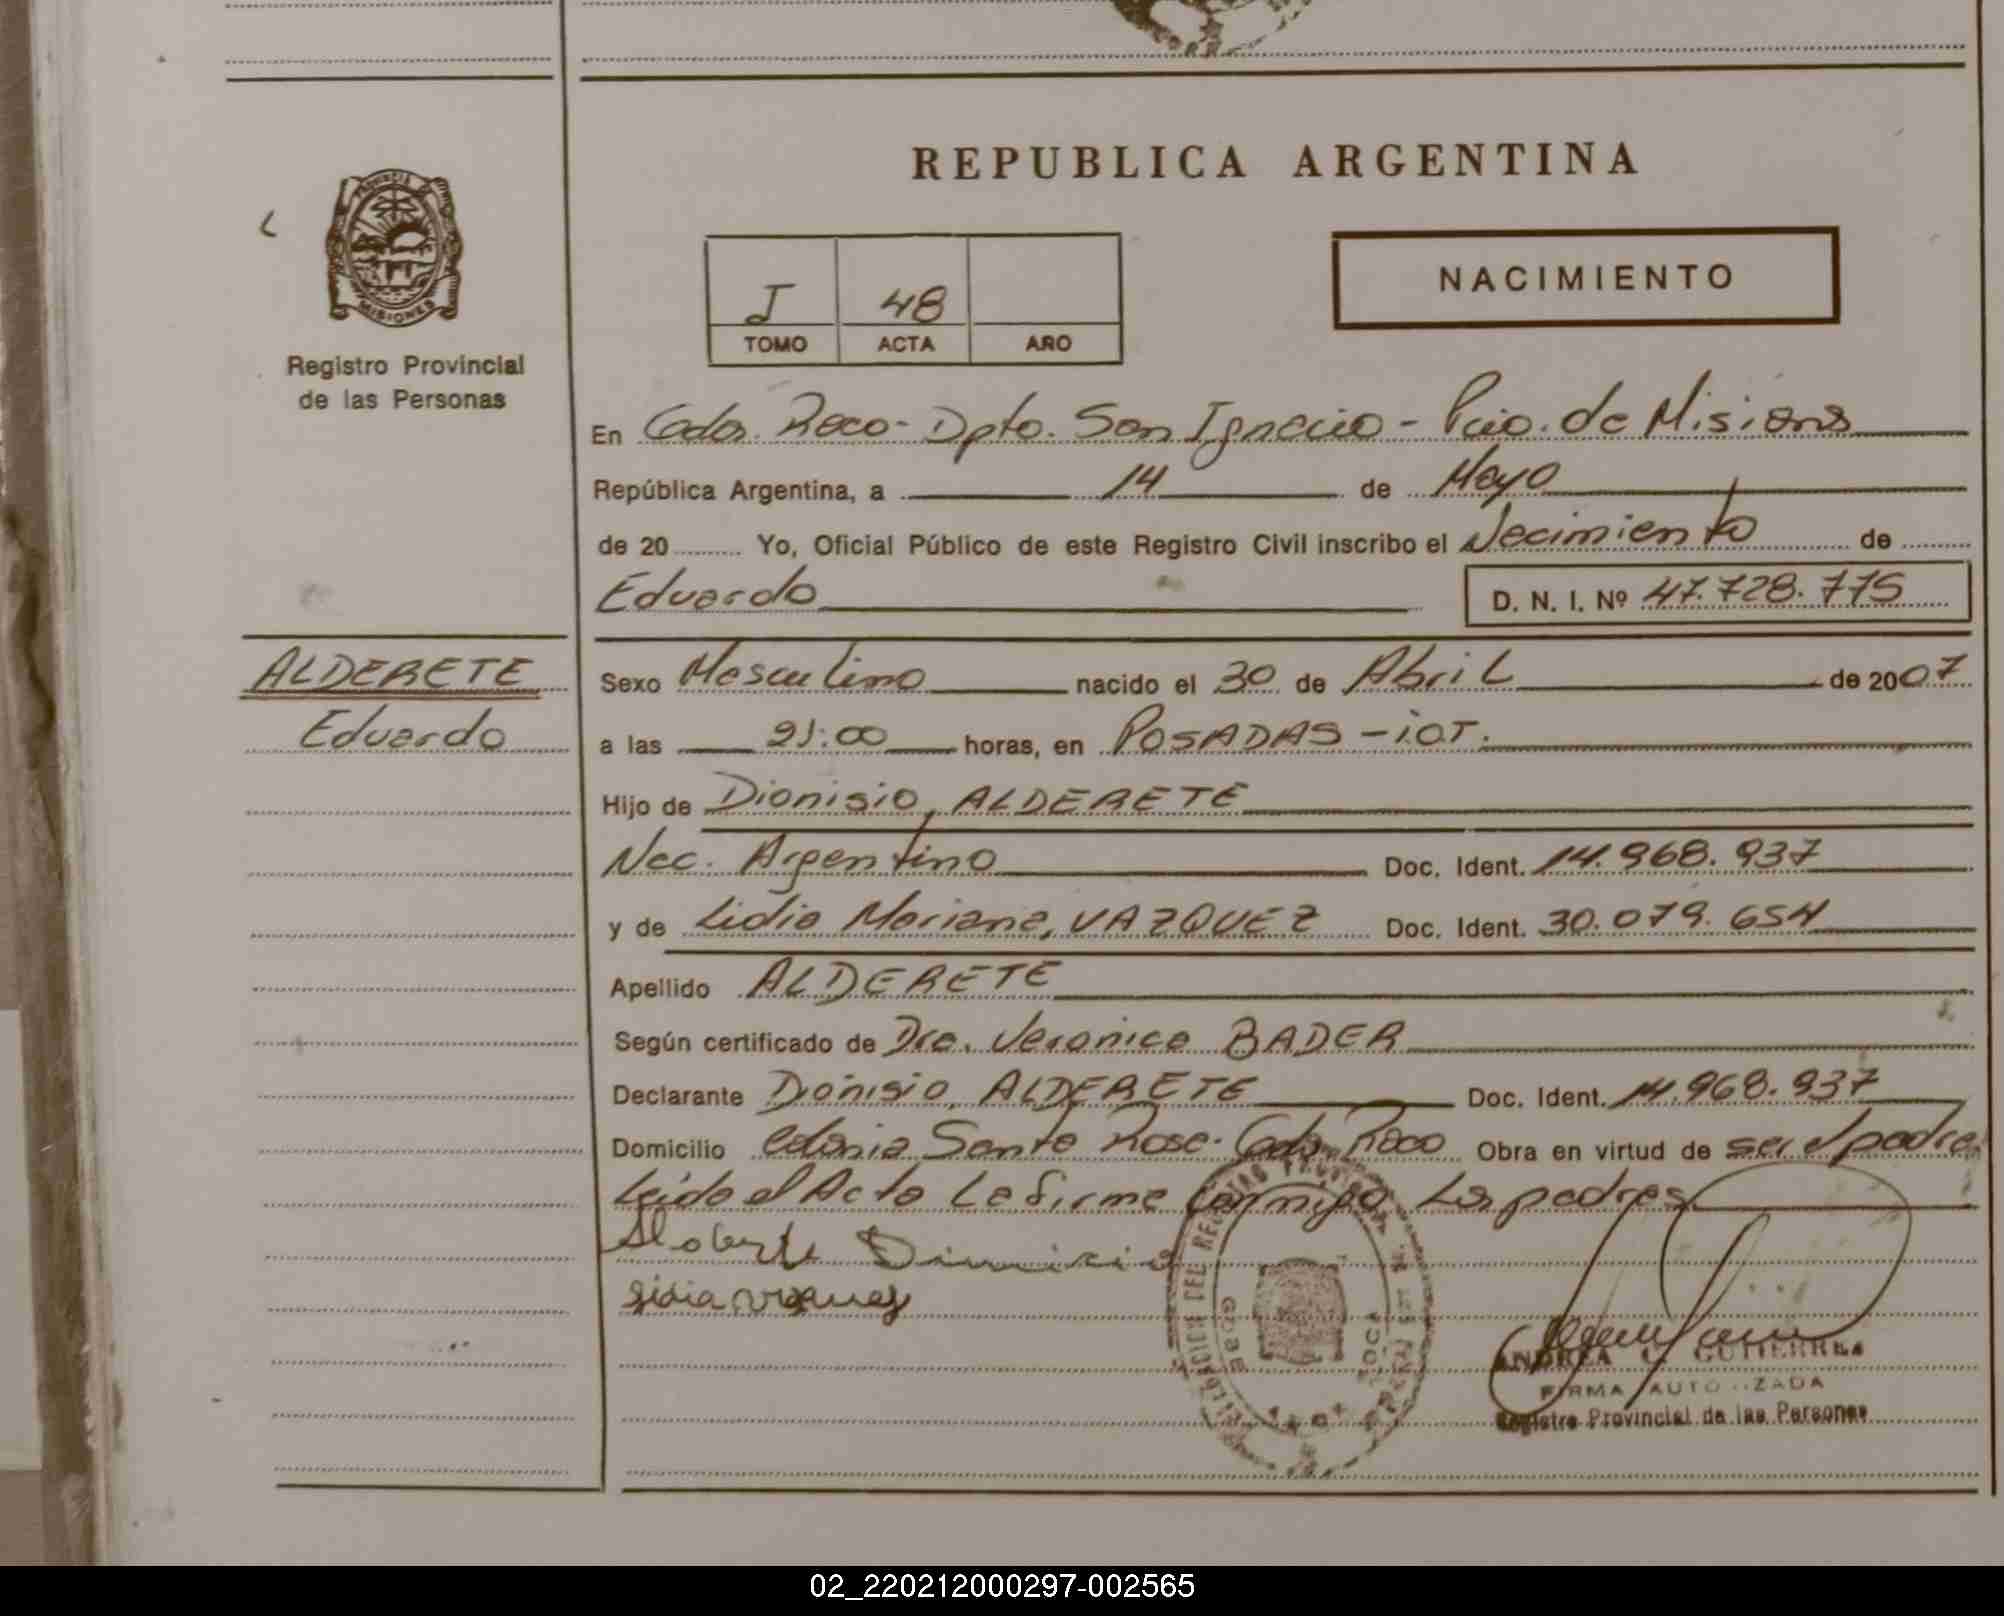 REPUBLICA ARGENTINA
PROVINCIA DE
MISIONES
Registro Provincial
de las Personas
I 48
TOMO ACTA AÑO
NACIMIENTO
En Gdor. Roca - Dpto. San Ignacio - Pcia. de Misiones
República Argentina, a 14 de Mayo
de 20 Yo, Oficial Público de este Registro Civil inscribo el Nacimiento de
Eduardo D. N. I. Nº 47.728.775
ALDERETE
Eduardo
Sexo Masculino nacido el 30 de Abril de 2007
a las 21:00 horas, en POSADAS - IOT.
Hijo de Dionisio, ALDERETE
Nac. Argentino Doc. Ident. 14.968.937
y de Lidia Mariana, VAZQUEZ Doc. Ident. 30.079.654
Apellido ALDERETE
Según certificado de Dra. Veronica BADER
Declarante Dionisio, ALDERETE Doc. Ident. 14.968.937
Domicilio Colonia Santa Rosa - Gdor Roca Obra en virtud de ser el padre
Leida el Acta La firma conmigo Los padres
ANDREA GUTIERREZ
FIRMA AUTORIZADA
Registro Provincial de las Personas
02_220212000297-002565